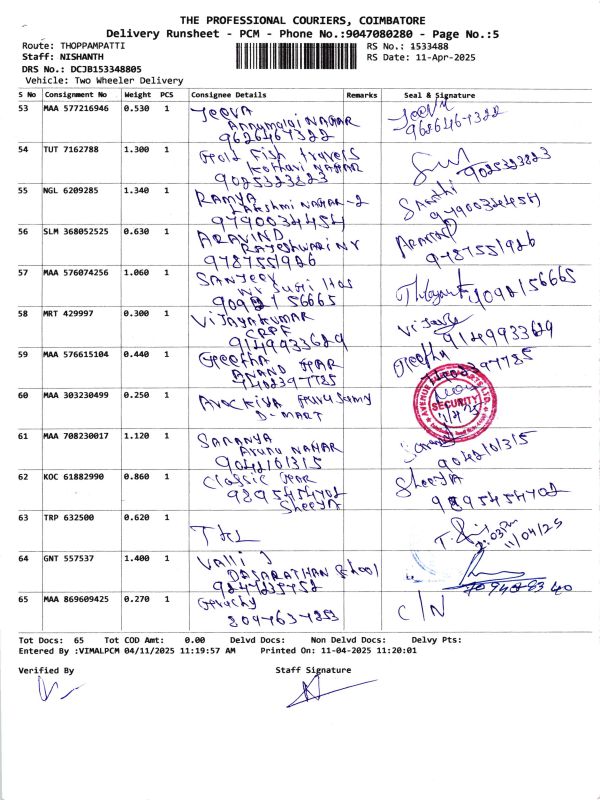 THE PROFESSIONAL COURIERS, COIMBATORE
Delivery Runsheet - PCM - Phone No.:9047080280 - Page No.:5
Route: THOPPAMPATTI RS No.: 1533488
Staff: NISHANTH RS Date: 11-Apr-2025
DRS No.: DCJB153348805
Vehicle: Two Wheeler Delivery
S No Consignment No Weight PCS Consignee Details Remarks Seal & Signature
53 MAA 577216946 0.530 1 JEEVA
Annumalai NAGAR
9626467322 9626467322
54 TUT 7162788 1.300 1 Gold Fish travels
Kothari NAGAR
9025323823 9025323823
55 NGL 6209285 1.340 1 RAMYA
Lakshmi NAGAR-2
9790034454 9790034454
56 SLM 368052525 0.630 1 ARAVIND ARAVIND
RAJESHWARI NR
9787551926 9787551926
57 MAA 576074256 1.060 1 SANJEEV
9092156665 9092156665
58 MRT 429997 0.300 1 VIJAYAKUMAR
CRPF
9149933629 9149933629
59 MAA 576615104 0.440 1 GEETHA Geetha
ANAND
7402397785
60 MAA 303230499 0.250 1
D-MART
SECURITY
61 MAA 708230017 1.120 1 SARANYA
Arunu NAGAR
9042101315 9042101315
62 KOC 61882990 0.860 1 Classic Sheeja
9895454702 9895454702
Sheeja
63 TRP 632500 0.620 1
2:03 Pm
11/04/25
64 GNT 557537 1.400 1 Valli J
DASARATHAN School
9247235752
65 MAA 869609425 0.270 1
8097637853 C/N
Tot Docs: 65 Tot COD Amt: 0.00 Delvd Docs: Non Delvd Docs: Delvy Pts:
Entered By :VIMALPCM 04/11/2025 11:19:57 AM Printed On: 11-04-2025 11:20:01
Verified By Staff Signature